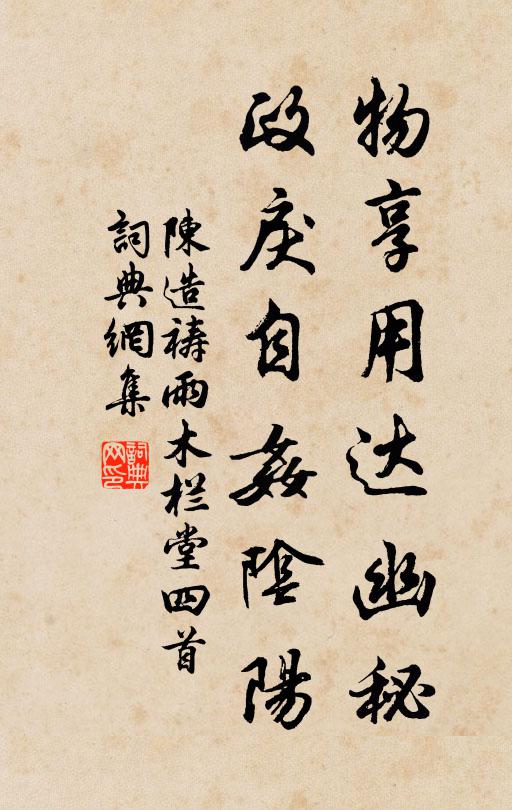 物享用达幽秘
政戾自姦陰陽
陳造禱雨木栏堂四首
詞典網集
詞典
网印